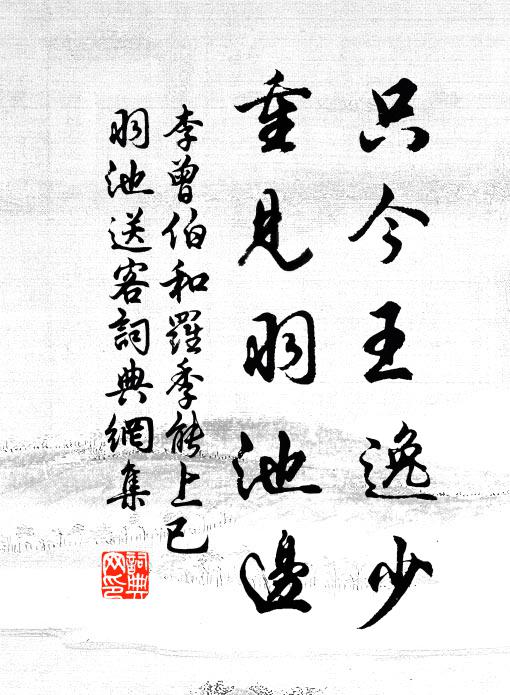 只今王逸少
重見羽池邊
李曾伯和羅季能上巳
羽池送客詞典網集
詞典網印